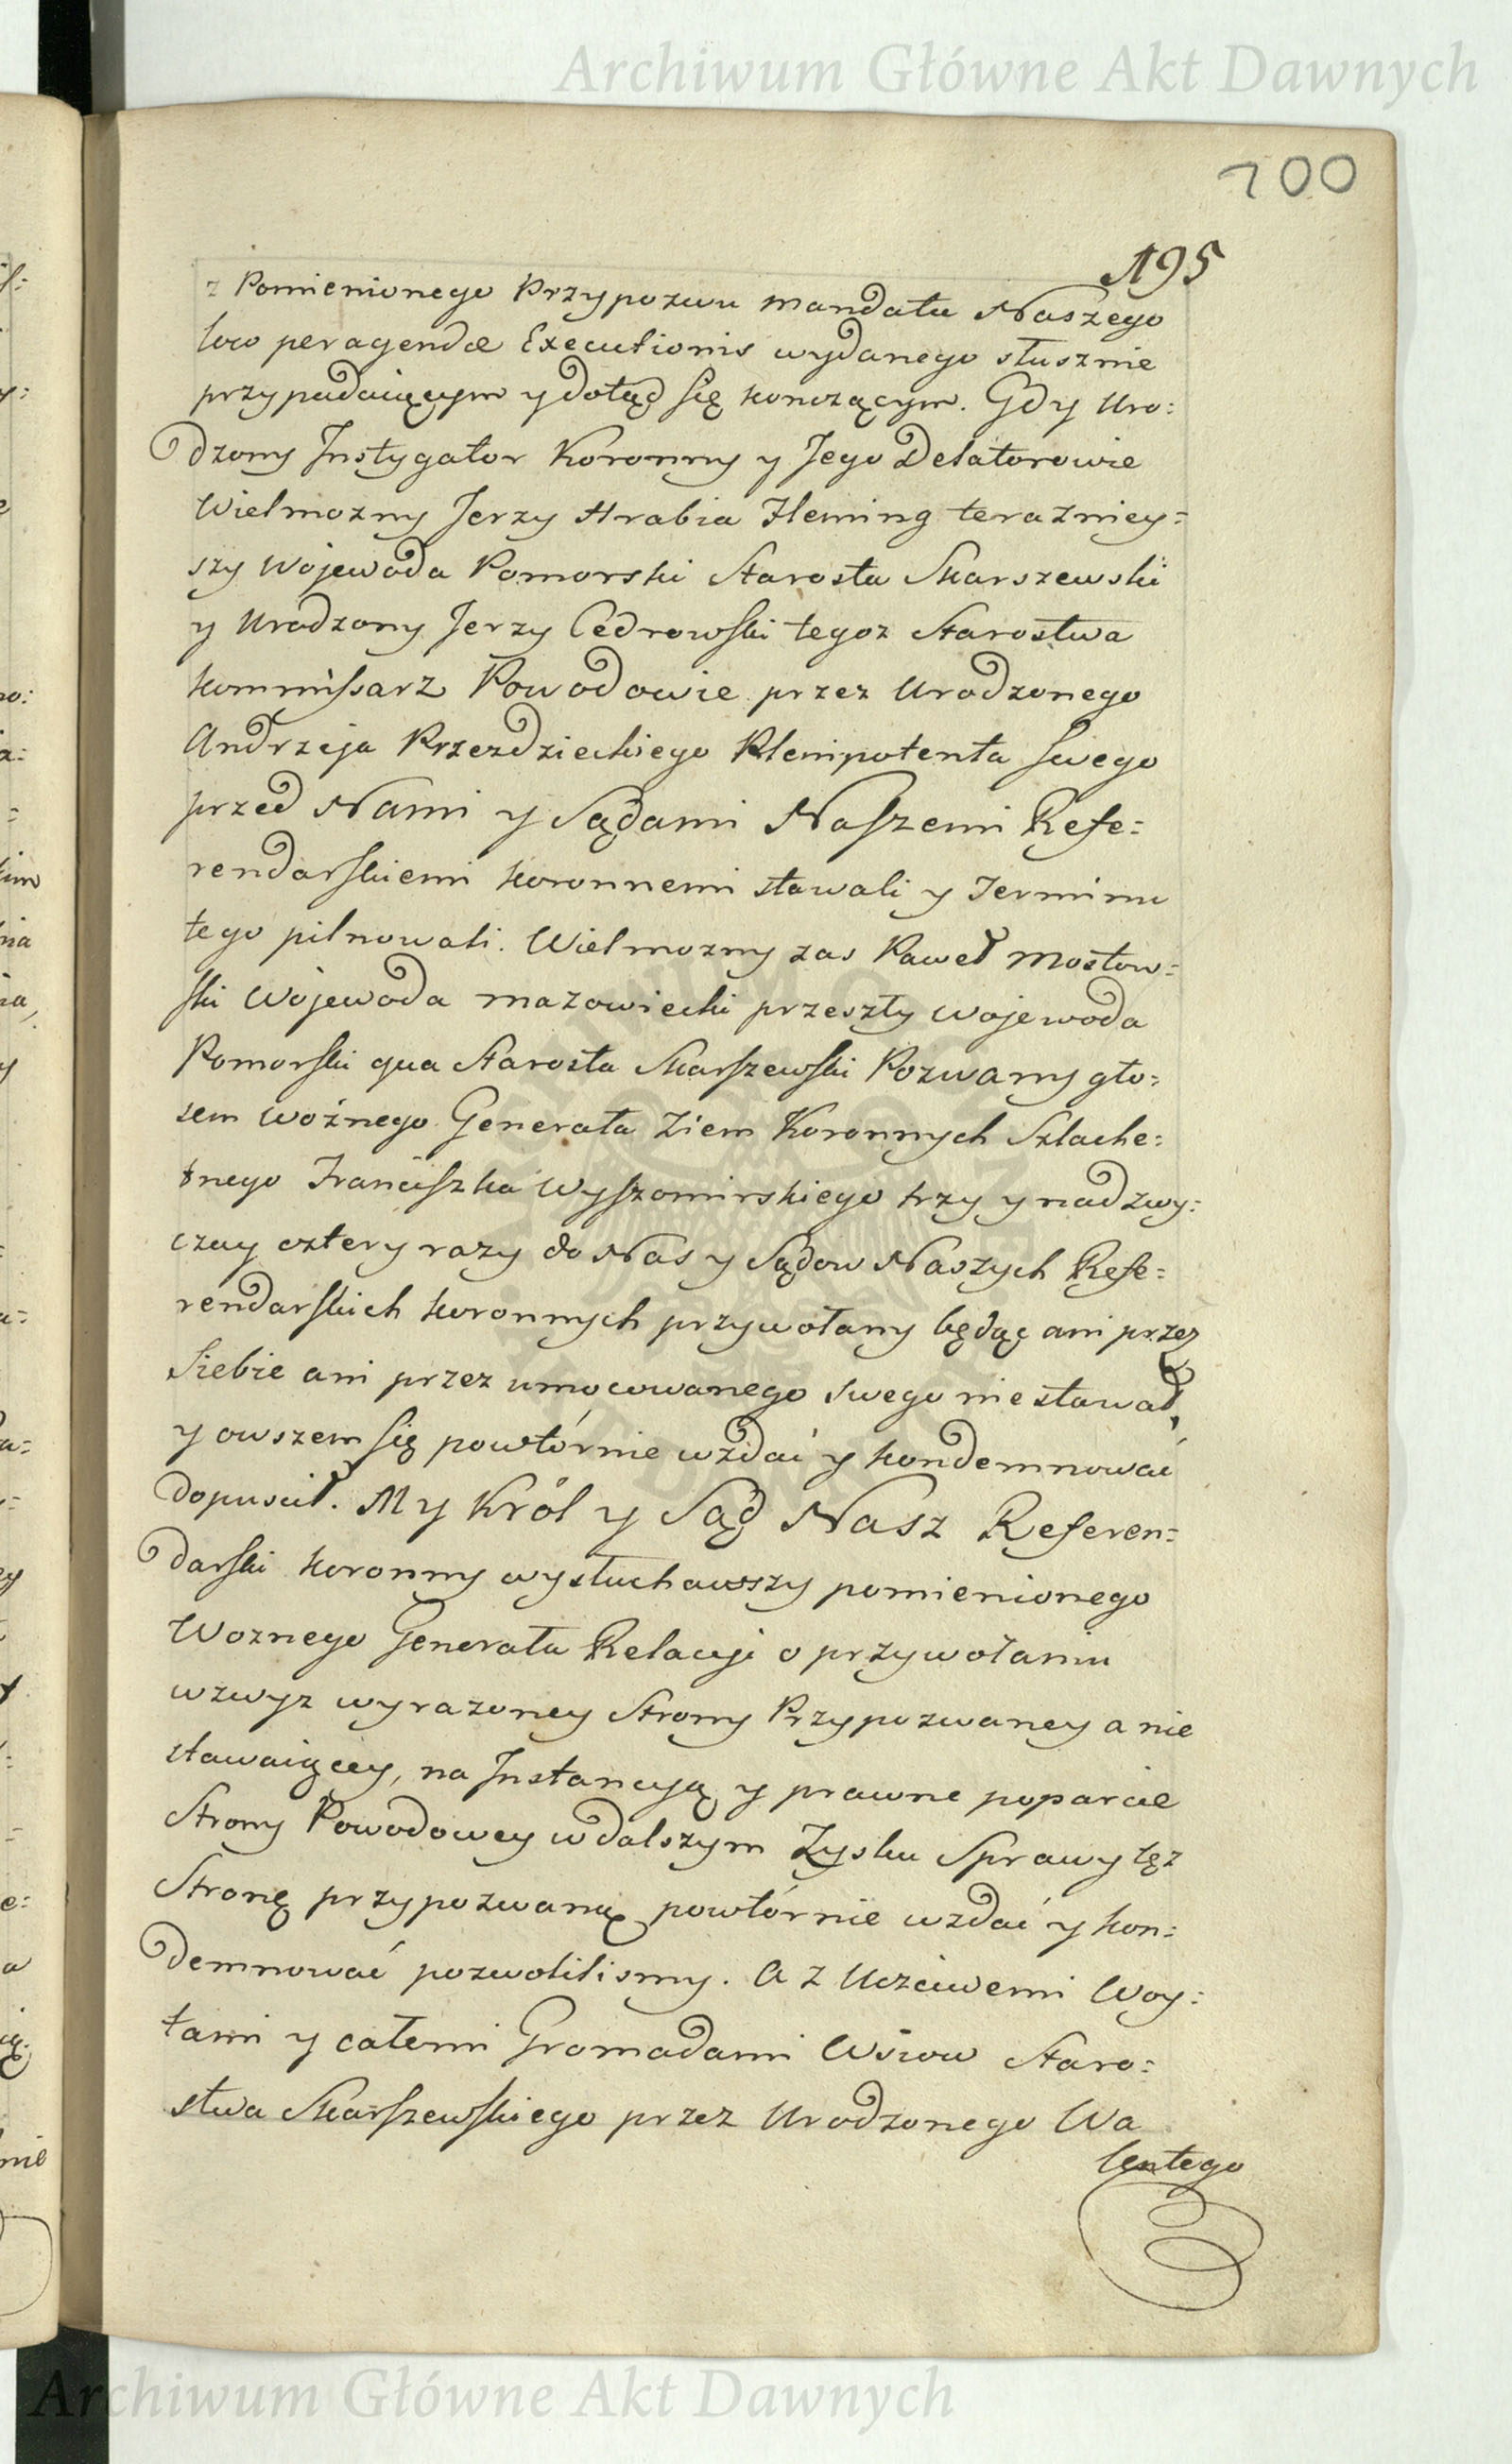 Archiwum Główne Akt Dawnych
100
195
z Pomienionego Przypozwu mandatu Naszego
loco peragendæ Executionis wydanego słusznie
przypadaiącym y dotąd się konczącym. Gdy Uro:
dzony Instygator Koronny y Jego Delatorowie
Wielmozny Jerzy Hrabia Fleming terazniey:
szy Wojewoda Pomorski Starosta Skarszewski
y Urodzony Jerzy Cedrowski tegoz Starostwa
kommissarz Powodowie przez Urodzonego
Andrzeja Przezdzieckiego Plenipotenta swego
przed Nami y Sądami Naszemi Refe:
rendarskiemi koronnemi stawali y Terminu
tego pilnowali. Wielmozny zas Paweł Mostow:
ski Wojewoda mazowiecki przeszły Wojewoda
Pomorski qua Starosta Skarszewski Pozwany gło:
sem Woźnego Generała Ziem Koronnych Szlache:
tnego Franciszka Wyszomirskiego trzy y nadzwy:
czay cztery razy do Nas y Sądow Naszych Refe:
rendarskich koronnych przywołany będąc ani przez
Siebie ani przez umocowanego swego nie stawał,
y owszem się powtórnie wzdać y kondemnować
dopuscił. My Król y Sąd Nasz Referen:
darski koronny wysłuchawszy pomienionego
Woznego Generała Relacyi o przywołaniu
wzwyz wyrazoney Strony Przypozwaney a nie
stawaiącey, na Instancyą y prawne poparcie
Strony Powodowey w dalszym Zysku Sprawy tęz
Stronę przypozwaną powtórnie wzdać y kon:
demnować pozwolilismy. A z Uczciwemi Woy:
tami y całemi Gromadami Wsiow Staro:
stwa Skarszewskiego przez Urodzonego Wa
lentego
Archiwum Główne Akt Dawnych